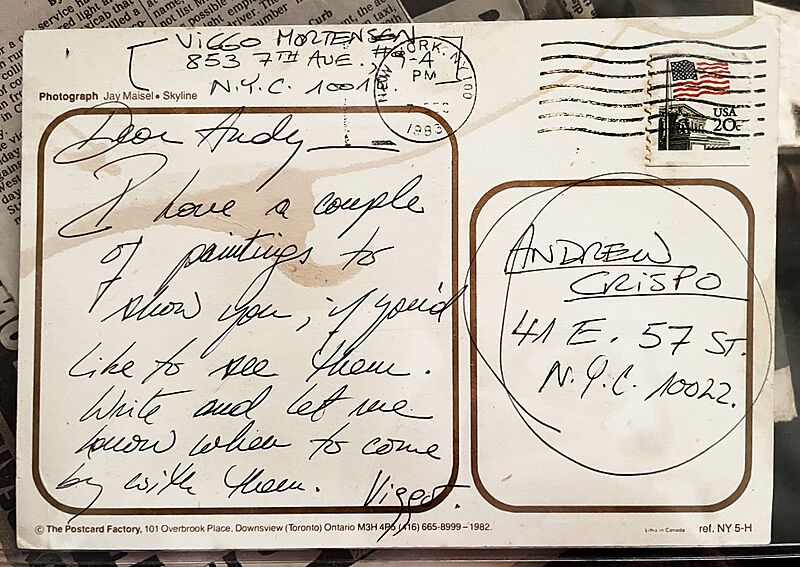 VIGGO MORTENSEN
853 7TH AVE. #9-4
N.Y.C. 1001
Photograph Jay Maisel • Skyline
YORK, NY 100
NEW
PM
7 DEC
1983
USA
20c
Dear Andy
I have a couple
of paintings to
show you, if you'd
like to see them.
Write and let me
know when to come
by with them. Viggo.
ANDREW
CRISPO
41 E. 57 ST.
N.Y.C. 10022.
© The Postcard Factory, 101 Overbrook Place, Downsview (Toronto) Ontario M3H 4P5 (416) 665-8999 – 1982.
Litho in Canada
ref. NY 5-H